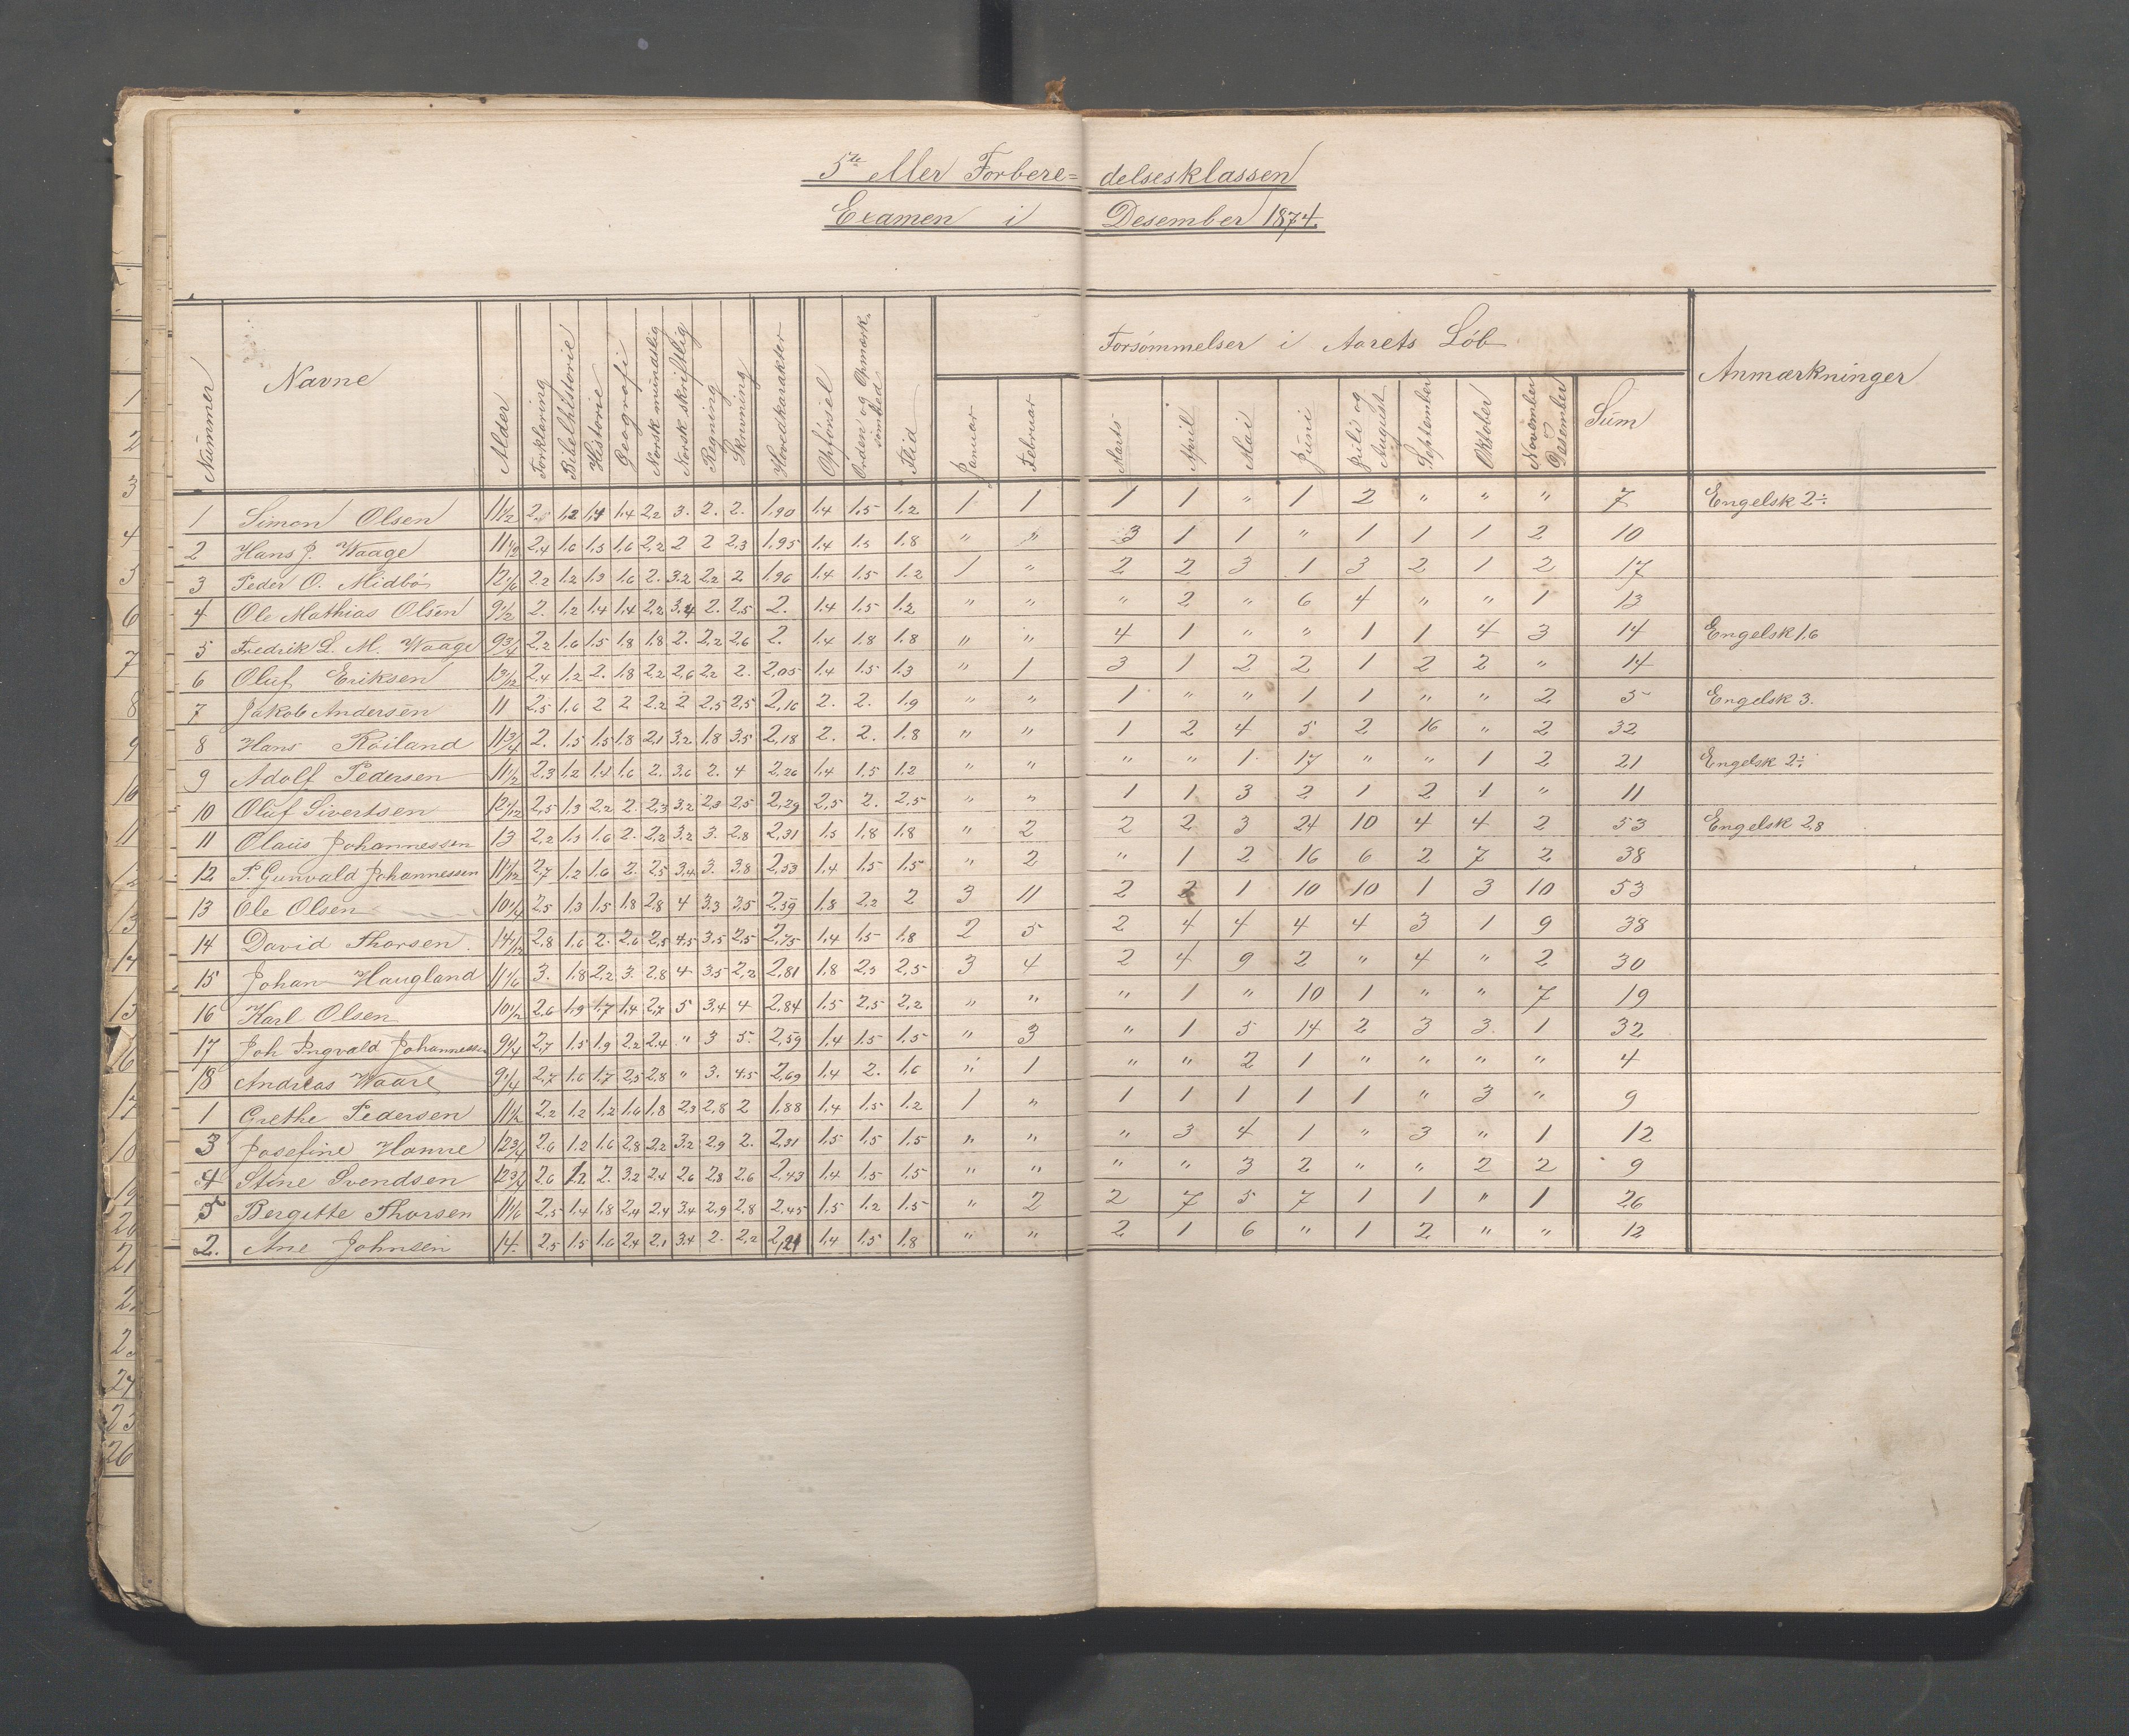 5te eller Forbere= delsesklassen
Examen i Desember 1874.
Nummer Navne Alder Forklaring Bibelhistorie Historie Geografi Norsk mundtlig Norsk skriftlig Regning Skrivning Hovedkarakter Opførsel Orden og Opmærk- somhed Flid Januar Februar Forsømmelser i Aarets Løb Marts April Mai Juni Juli og August September Oktober November & Desember Sum Anmærkninger
1 Simon Olsen 11 1/2 2. 1.2 1.4 1.4 2.2 3. 2. 2. 1.90 1.4 1.5 1.2 1 1 1 1 " 1 2 " " " 7 Engelsk 2÷
2 Hans J. Waage 11 1/2 2.4 1.6 1.5 1.6 2.2 2 2 2.3 1.95 1.4 1.5 1.8 " " 3 1 1 " 1 1 1 2 10
3 Peder O. Midbø 12 1/6 2.2 1.2 1.3 1.6 2. 3.2 2.2 2 1.96 1.4 1.5 1.2 1 " 2 2 3 1 3 2 1 2 17
4 Ole Mathias Olsen 9 1/2 2. 1.2 1.4 1.4 2.2 3.4 2. 2.5 2. 1.4 1.5 1.2 " " " 2 " 6 4 " " 1 13
5 Fredrik L. M. Waage 9 3/4 2.2 1.6 1.5 1.8 1.8 2. 2.2 2.6 2. 1.4 1.8 1.8 " " 4 1 " " 1 1 4 3 14 Engelsk 1.6
6 Oluf Eriksen 13 1/12 2.4 1.2 2. 1.8 2.2 2.6 2.2 2. 2.05 1.4 1.5 1.3 " 1 3 1 2 2 1 2 2 " 14
7 Jakob Andersen 11 2.5 1.6 2 2 2.2 2 2.5 2.5 2.16 2. 2. 1.9 " " 1 " " 1 1 " " 2 5 Engelsk 3.
8 Hans Røiland 11 3/4 2. 1.5 1.5 1.8 2.1 3.2 1.8 3.5 2.18 2. 2. 1.8 " " 1 2 4 5 2 16 " 2 32
9 Adolf Pedersen 11 1/2 2.3 1.2 1.4 1.6 2. 3.6 2. 4 2.26 1.4 1.5 1.2 " " " " 1 17 " " 1 2 21 Engelsk 2÷
10 Oluf Sivertsen 12 1/12 2.5 1.3 2.2 2. 2.3 3.2 2.3 2.5 2.29 2.5 2. 2.5 " " 1 1 3 2 1 2 1 " 11
11 Olaus Johannessen 13 2.2 1.3 1.6 2. 2.2 3.2 3. 2.8 2.31 1.5 1.8 1.8 " 2 2 2 3 24 10 4 4 2 53 Engelsk 2,8
12 P. Gunvald Johannessen 11 1/12 2.7 1.2 1.6 2. 2.5 3.4 3. 3.8 2.53 1.4 1.5 1.5 " 2 " 1 2 16 6 2 7 2 38
13 Ole Olsen 10 1/4 2.5 1.3 1.5 1.8 2.8 4 3.3 3.5 2.59 1.8 2.2 2 3 11 2 2 1 10 10 1 3 10 53
14 David Thorsen 14 1/12 2.8 1.6 2. 2.6 2.5 4.5 3.5 2.5 2.75 1.4 1.5 1.8 2 5 2 4 4 4 4 3 1 9 38
15 Johan Haugland 11 1/6 3. 1.8 2.2 3. 2.8 4 3.5 2.2 2.81 1.8 2.3 2.5 3 4 2 4 9 2 " 4 " 2 30
16 Karl Olsen 10 1/2 2.6 1.9 1.7 1.4 2.7 5 3.4 4 2.84 1.5 2.5 2.2 " " " 1 " 10 1 " " 7 19
17 Joh Ingvald Johannessen 9 1/4 2.7 1.5 1.9 2.2 2.4 " 3 5. 2.59 1.4 1.5 1.5 " 3 " 1 5 14 2 3 3 1 32
18 Andreas Waare 9 1/4 2.7 1.6 1.7 2.5 2.8 " 3. 4.5 2.69 1.4 2. 1.6 " 1 " " 2 1 " " " " 4
1 Grethe Pedersen 11 1/2 2.2 1.2 1.2 1.6 1.8 2.3 2.8 2 1.88 1.4 1.5 1.2 1 " 1 1 1 1 1 " 3 " 9
3 Josefine Hanne 12 3/4 2.6 1.2 1.6 2.8 2.2 3.2 2.9 2. 2.31 1.5 1.5 1.5 " " " 3 4 1 " 3 " 1 12
4 Stine Svendsen 12 3/4 2.6 1.2 2. 3.2 2.4 2.6 2.8 2.6 2.43 1.4 1.5 1.5 " " " " 3 2 " " 2 2 9
5 Bergitte Thorsen 11 1/6 2.5 1.4 1.8 2.4 2.4 3.4 2.9 2.8 2.45 1.5 1.2 1.5 " 2 2 7 5 7 1 1 " 1 26
2. Ane Johnsen 14. 2.5 1.5 1.6 2.4 2.1 3.4 2. 2.2 2,21 1.4 1.5 1.8 " " 2 1 6 " 1 2 " " 12